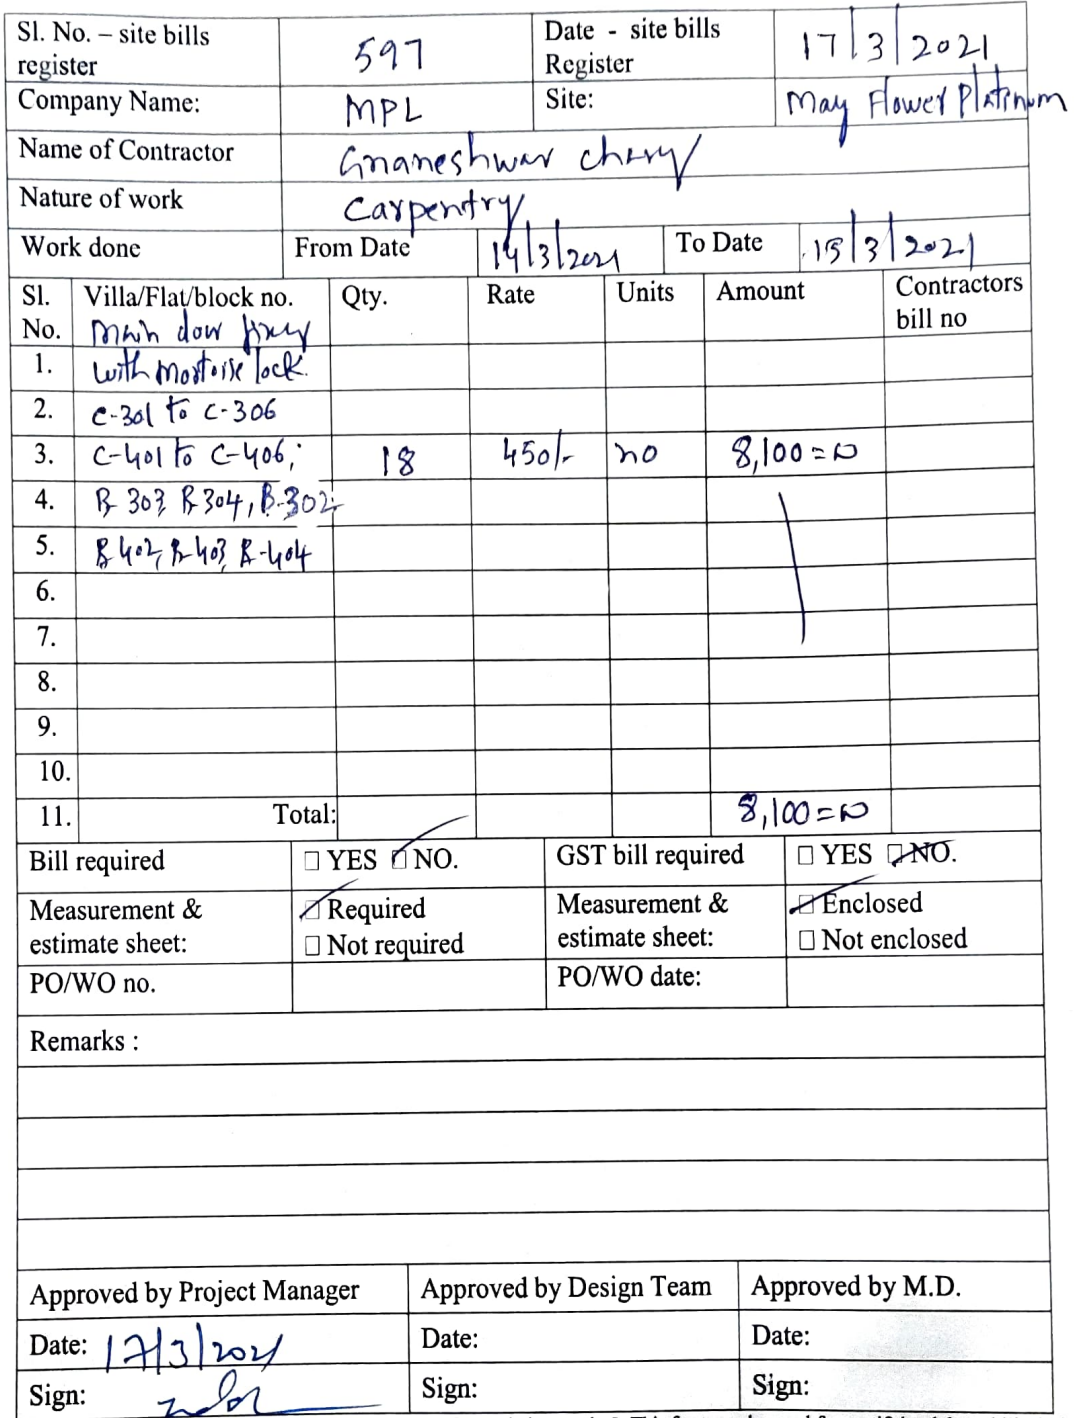 Sl. No. – site bills register 597 Date - site bills Register 17/3/2021
Company Name: MPL Site: May Flower Platinum
Name of Contractor Gnaneshwar chary
Nature of work Carpentry
Work done From Date 14/3/2021 To Date 15/3/2021
Sl. No. Villa/Flat/block no. Qty. Rate Units Amount Contractors bill no
Main door
1. with mortoise lock.
2. C-301 to C-306
3. C-401 to C-406, 18 450/- no 8,100=00
4. B 303, B 304, B-302
5. B 402, B-403, B-404
6.
7.
8.
9.
10.
11. Total: 8,100=00
Bill required ☐ YES ☐ NO. GST bill required ☐ YES ☐ NO.
Measurement & estimate sheet: ☐ Required Measurement & estimate sheet: ☐ Enclosed
☐ Not required ☐ Not enclosed
PO/WO no. PO/WO date:
Remarks :
Approved by Project Manager Approved by Design Team Approved by M.D.
Date: 17/3/2021 Date: Date:
Sign: Sign: Sign: